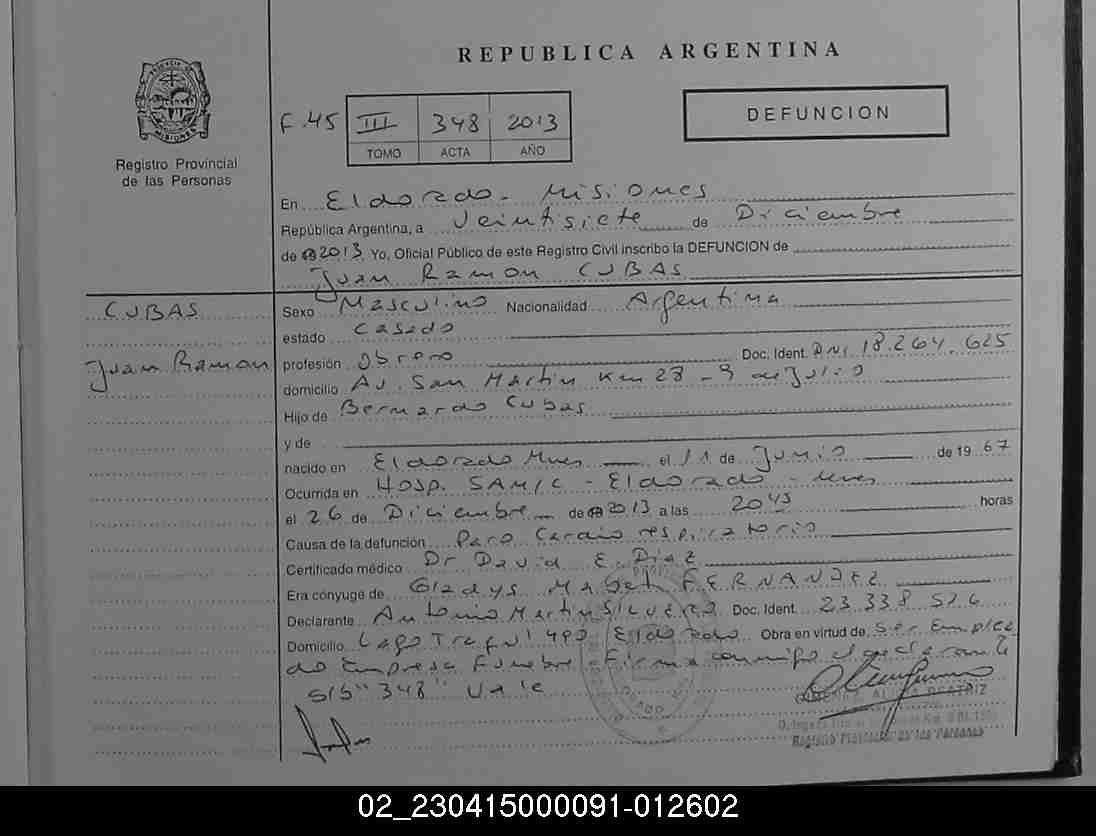 REPUBLICA ARGENTINA
DEFUNCION
F.45 III 348 2013
TOMO ACTA AÑO
Registro Provincial
de las Personas
En Eldorado - Misiones
República Argentina, a Veintisiete de Diciembre
de 2013. Yo, Oficial Público de este Registro Civil inscribo la DEFUNCION de
Juan Ramon CUBAS
CUBAS
Juan Ramon
Sexo Masculino Nacionalidad Argentina
estado Casado
profesión Obrero Doc. Ident. DNI 18.264.625
domicilio Av. San Martin Km 28 - 9 de Julio
Hijo de Bernardo Cubas
y de
nacido en Eldorado Mnes el 11 de Junio de 1967
Ocurrida en Hosp. SAMIC - Eldorado - Mnes
el 26 de Diciembre de 2013 a las 2045 horas
Causa de la defunción Paro Cardio respiratorio
Certificado médico Dr David E. Diaz
Era cónyuge de Gladys Mabel FERNANDEZ
Declarante Antonio Martin Doc. Ident. 23.338.526
Domicilio Lago 490 Eldorado Obra en virtud de Ser Emplea
do Empresa Funebre - Firma conmigo el declarante
S/b "348" Vale
Registro Provincial de las Personas
02_230415000091-012602